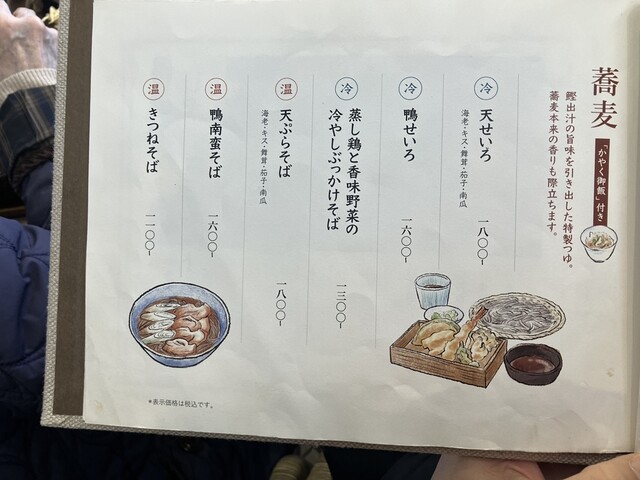 蕎麦
「かやく御飯」付き
鰹出汁の旨味を引き出した特製つゆ。
蕎麦本来の香りも際立ちます。
冷
天せいろ
海老・キス・舞茸・茄子・南瓜
一八〇〇-
冷
鴨せいろ
一六〇〇-
冷
蒸し鶏と香味野菜の
冷やしぶっかけそば
一三〇〇-
温
天ぷらそば
海老・キス・舞茸・茄子・南瓜
一八〇〇-
温
鴨南蛮そば
一六〇〇-
温
きつねそば
一一〇〇-
*表示価格は税込です。